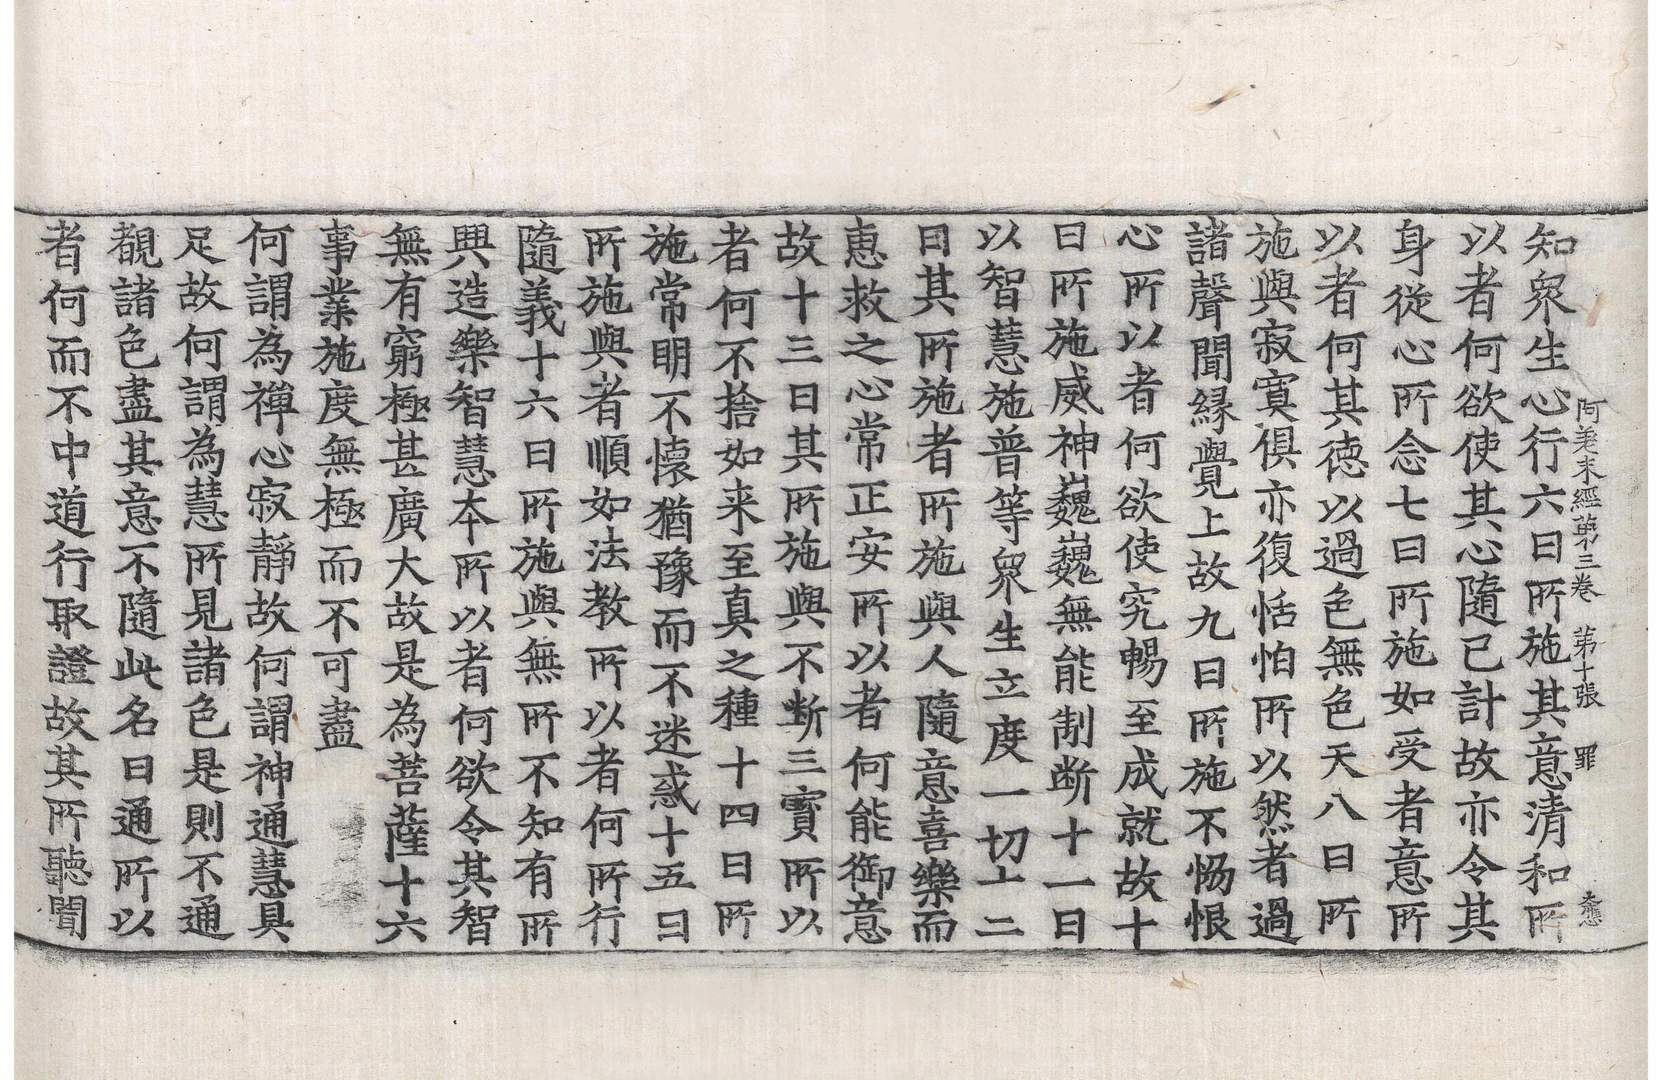 阿差末經第三卷　第十張　罪
知衆生心行六曰所施其意清和所
以者何欲使其心隨已計故亦令其
身從心所念七曰所施如受者意所
以者何其德以過色無色天八曰所
施與寂寞俱亦復恬怕所以然者過
諸聲聞緣覺上故九曰所施不惱恨
心所以者何欲使究暢至成就故十
曰所施威神巍巍無能制断十一曰
以智慧施普等衆生立度一切十二
曰其所施者所施與人隨意喜樂而
恵救之心常正安所以者何能御意
故十三曰其所施與不断三寳所以
者何不捨如来至真之種十四曰所
施常明不懷猶豫而不迷惑十五曰
所施與者順如法教所以者何所行
隨義十六曰所施與無所不知有所
興造樂智慧本所以者何欲令其智
無有窮極甚廣大故是為菩薩十六
事業施度無極而不可盡
何謂為禪心寂靜故何謂神通慧具
足故何謂為慧所見諸色是則不通
覩諸色盡其意不隨此名曰通所以
者何而不中道行取證故其所聽聞